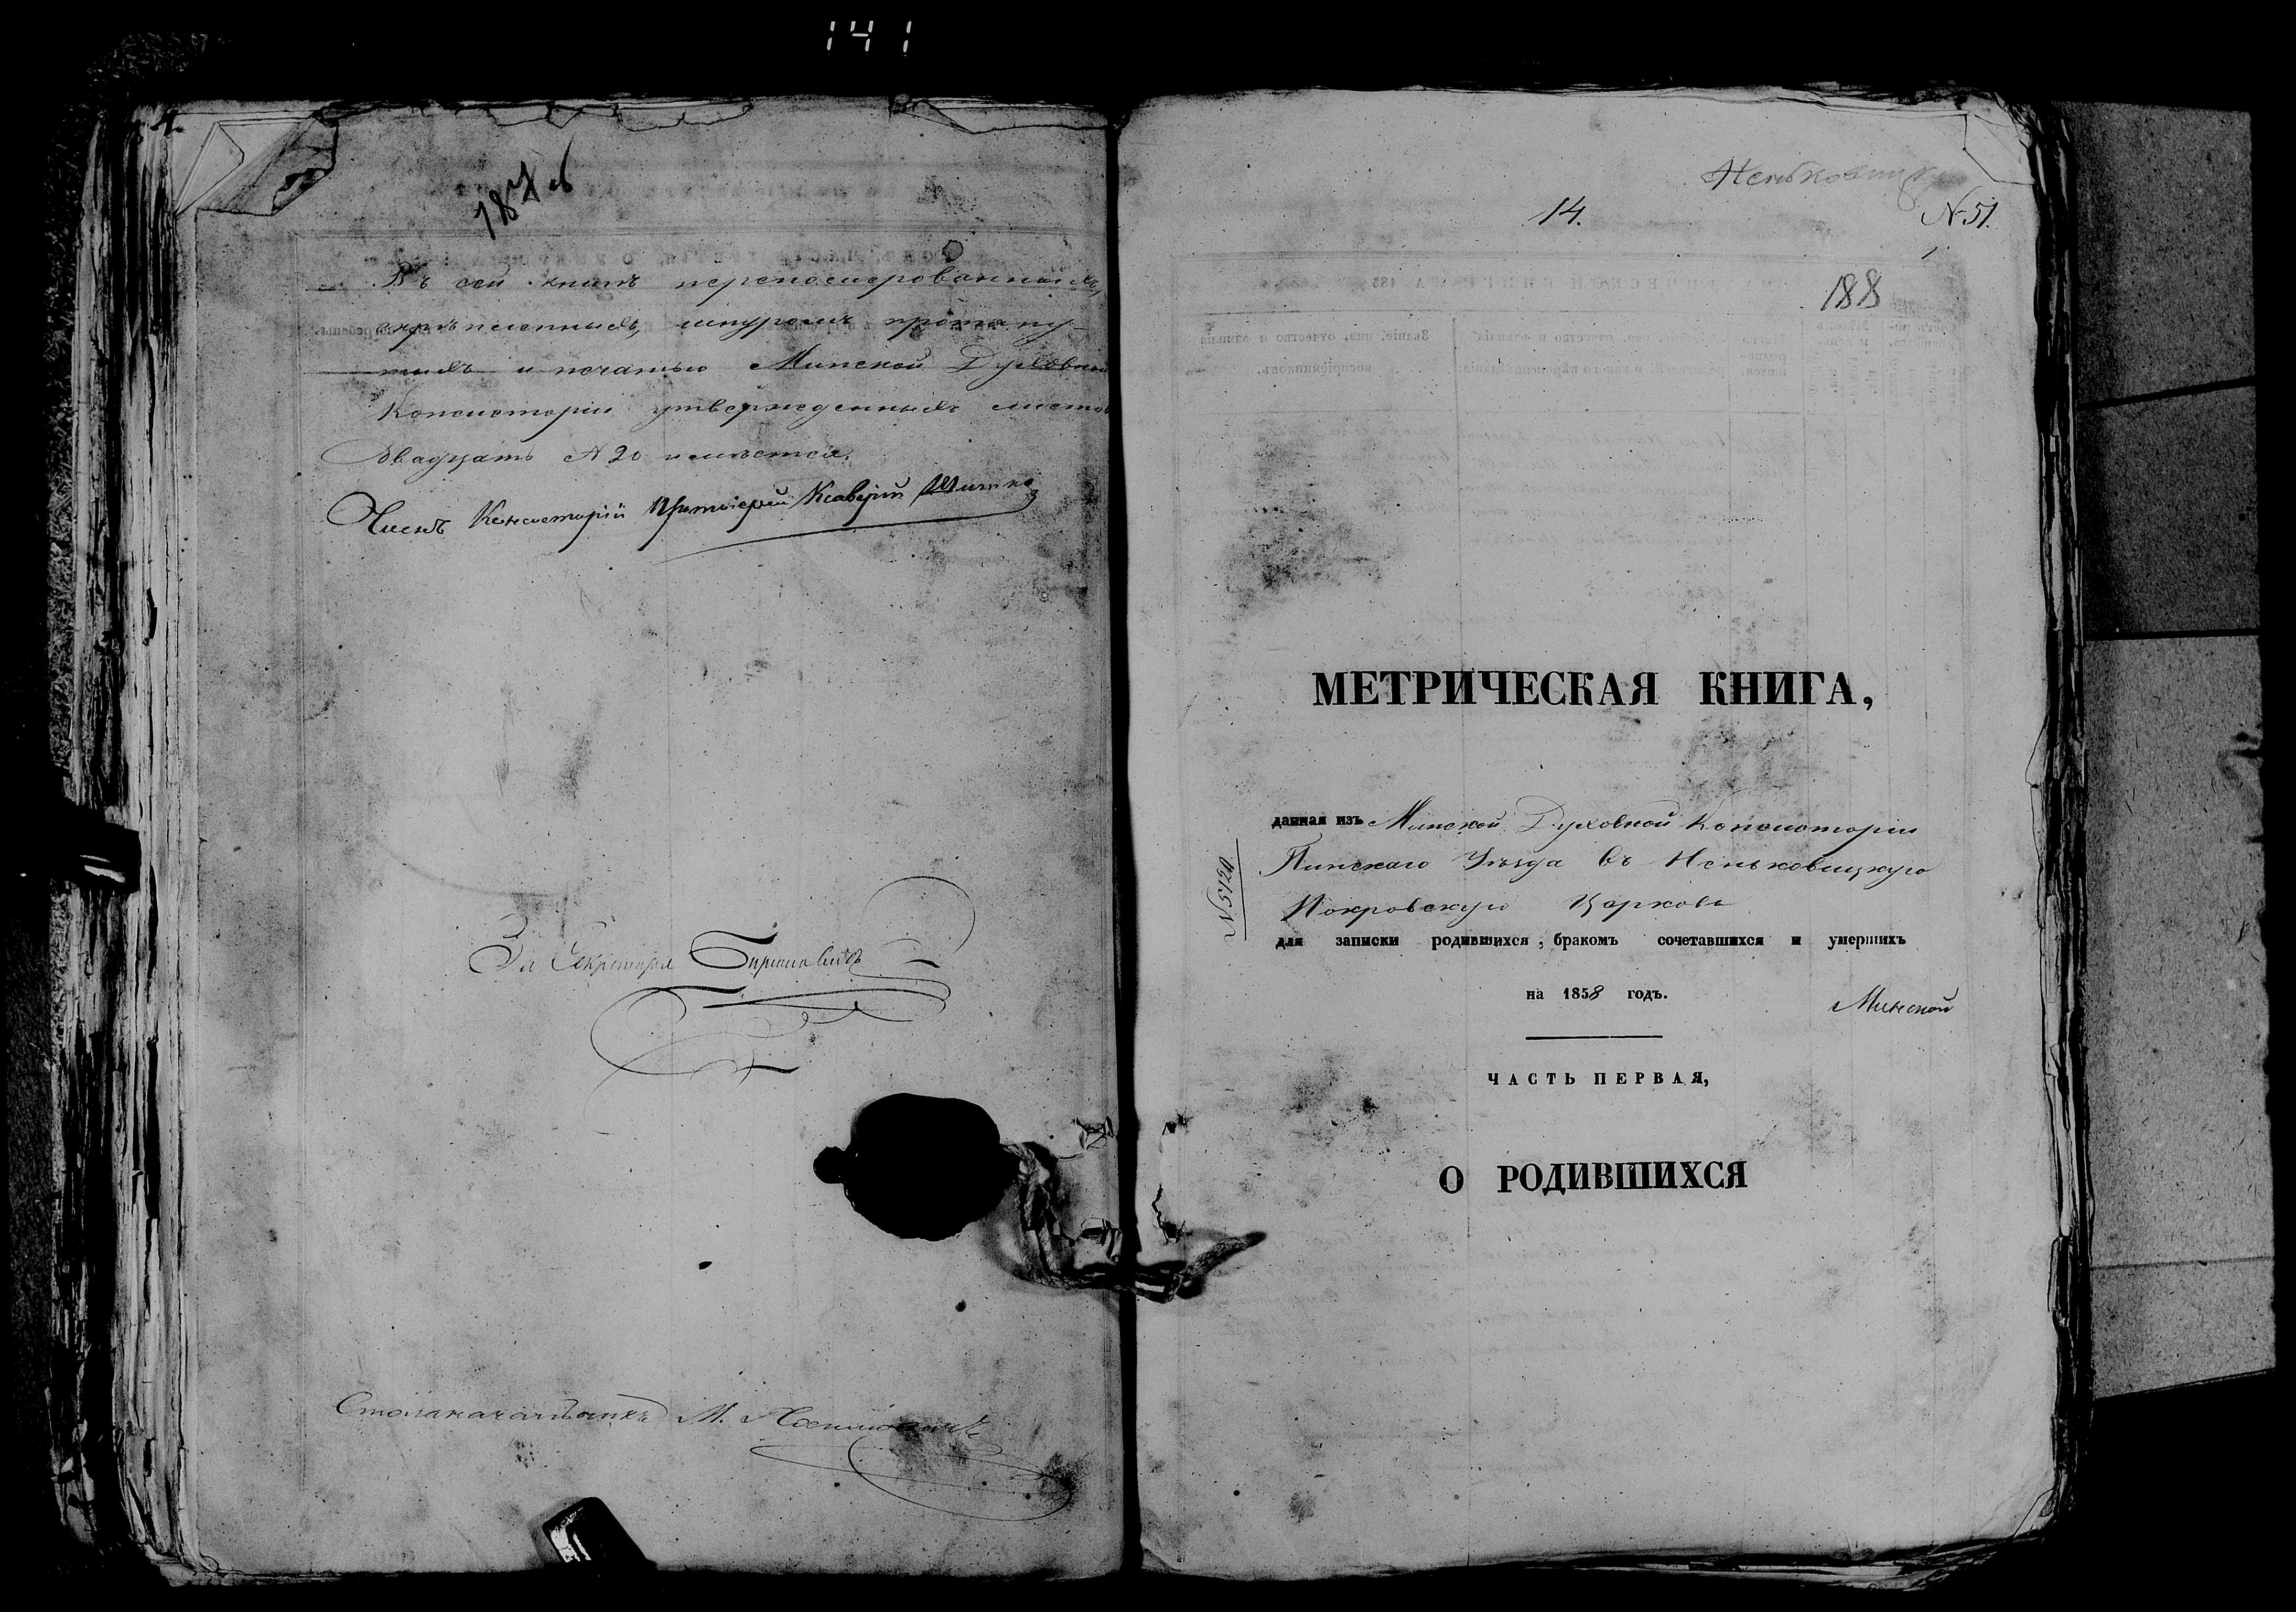 141
187 об
Въ сей книгѣ переномерованныхъ,
скрѣпленныхъ, шнуромъ протяну-
тыхъ и печатью Минской Духовной
Консисторіи утвержденныхъ листовъ
Двадцать № 20 имѣется.
Членъ Консисторіи Протоіерей Ксаверій
За Секретаря
Столоначальникъ М.
Неньковичи
14.
N 51.
188
МЕТРИЧЕСКАЯ КНИГА,
данная изъ Минской Духовной Консисторіи
Пинскаго Уѣзда въ Неньковицкую
Покровскую Церковь
N 5120
для записки родившихся, бракомъ сочетавшихся и умершихъ
на 1858 годъ.
Минской
ЧАСТЬ ПЕРВАЯ,
О РОДИВШИХСЯ